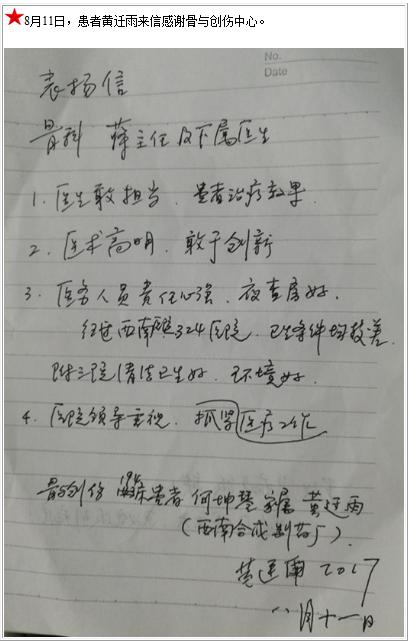 8月11日，患者黄迁雨来信感谢骨与创伤中心。
No.
Date
表扬信
骨科 蒋主任及下属医生
1. 医生敢担当、患者治疗效果.
2. 医术高明、敢于创新
3. 医务人员责任心强、夜查房好.
经过西南医院324医院、卫生条件均较差.
附三院清洁卫生好、环境好.
4. 医院领导重视、抓紧医疗工作
骨与创伤 患者何坤慧家属 黄迁雨
（西南合成制药厂）.
黄迁雨 2017
八月十一日